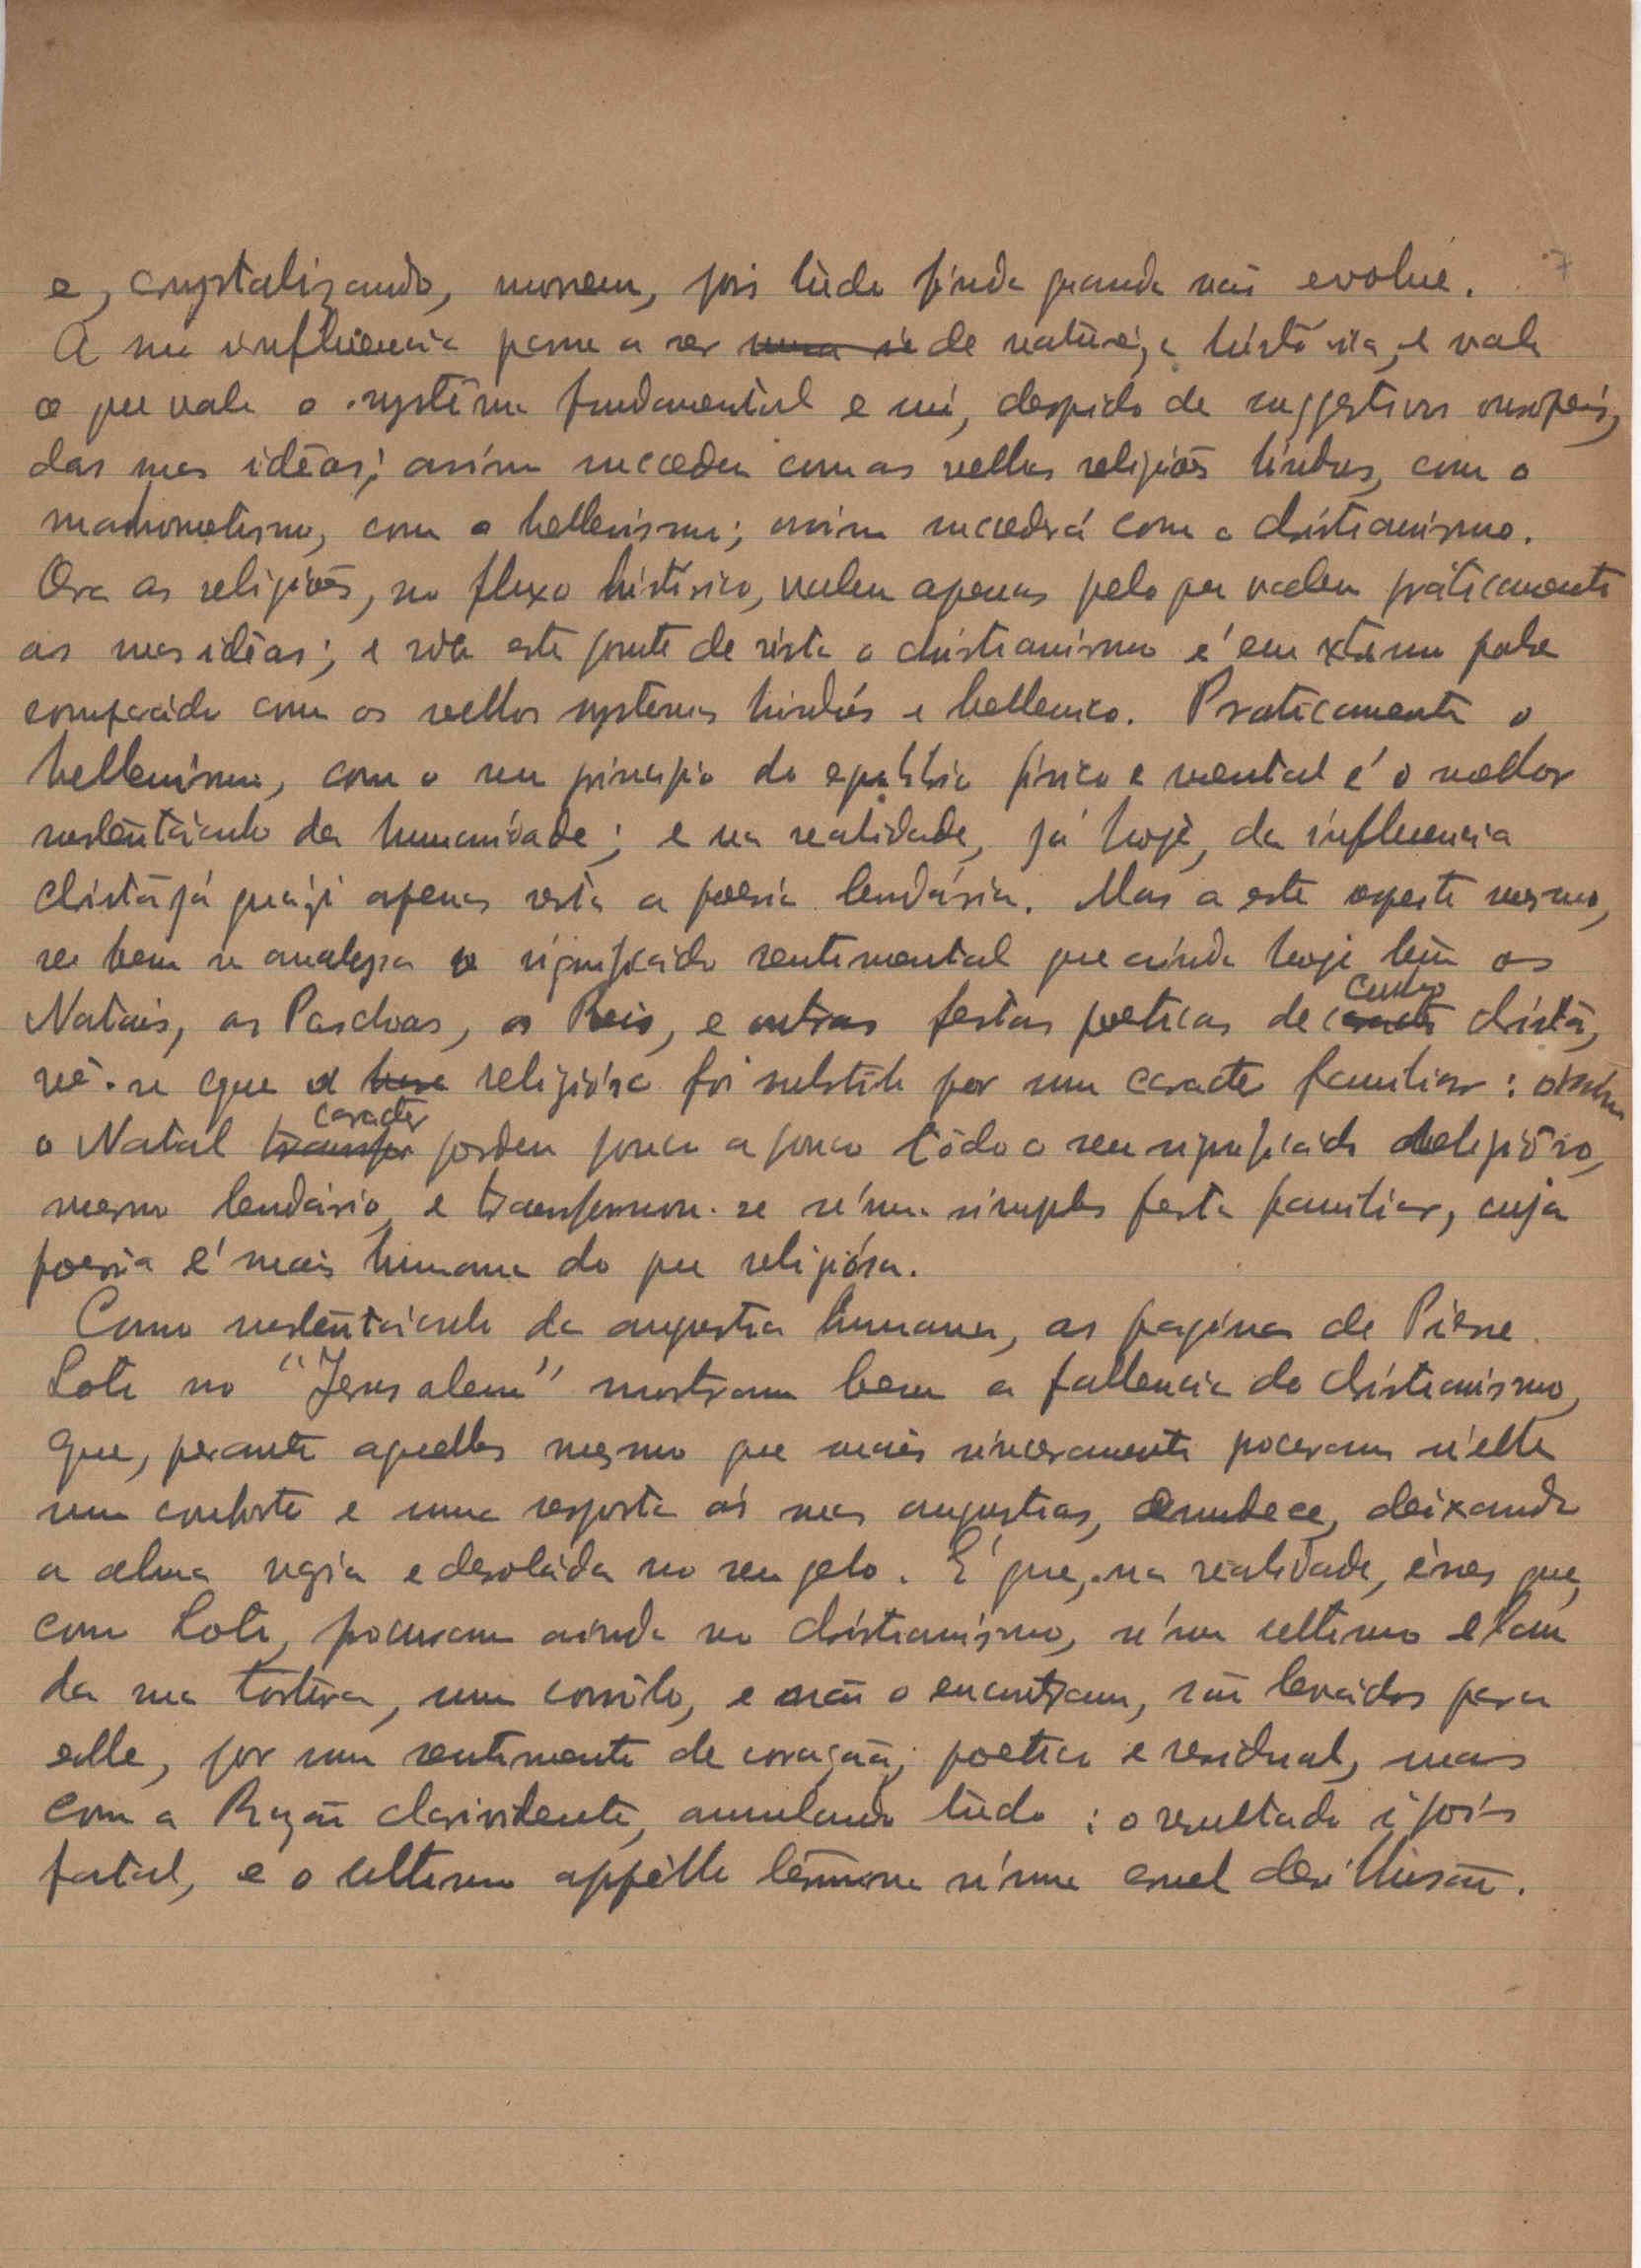 e, crystalizando, morrem, pois túdo finda quando não evolúe.
A sua influencia passa a ser de naturêza histórica, e vale
o que vale o systêma fundamental e nú, despido de suggestivos ouropeis,
das suas idêas; assim succedeu com as velhas religiões hindus, com o
mahometismo, com o hellenismo; assim succederá com o christianismo.
Ora as religiões, no fluxo histórico, valem apenas pelo que valem práticamente
as suas idêas; e sób este ponto de vista o christianismo é em extremo pobre
comparado com os velhos systemas hindús e hellenico. Praticamente o
hellenismo, com o seu principio do equilibrio fisico e mental é o melhor
sustentáculo da humanidade; e na realidade, já hoje, da influencia
christã já quázi apenas resta a poesia lendária. Mas a este aspecto mesmo,
se bem se analyza o significado sentimental que ainda hoje têm os
Natais, as Paschoas, os Reis, e outras festas poeticas de cunho christã,
vê-se que a religiósa foi substit por um caracter familiar: assim
o Natal caracter perdeu pouco a pouco tôdo o seu significado religiôso,
mesmo lendário, e transformou-se n'uma simples festa familiar, cuja
poesia é mais humana do que religiósa.
Como sustentáculo da angustia humana, as paginas de Pierre
Loti no "Jerusalem" mostram bem a fallencia do christianismo,
que, perante aquelles mesmo que mais sinceramente pocuram n'elle
um conforto e uma resposta ás suas angustias, emudece, deixando
a alma vazia e desoláda no seu gelo. É que, na realidade, esses que,
com Loti, procuram ainda no christianismo, n'um ultimo elan
da sua tortura, um consôlo, e não o encontram, são levados para
elle, por um sentimento de coração, poetico e residual, mas
com a Razão clarividente, annulando túdo: o resultado é pois
fatal, e o ultimo appêllo termina n'uma cruel desillusão.